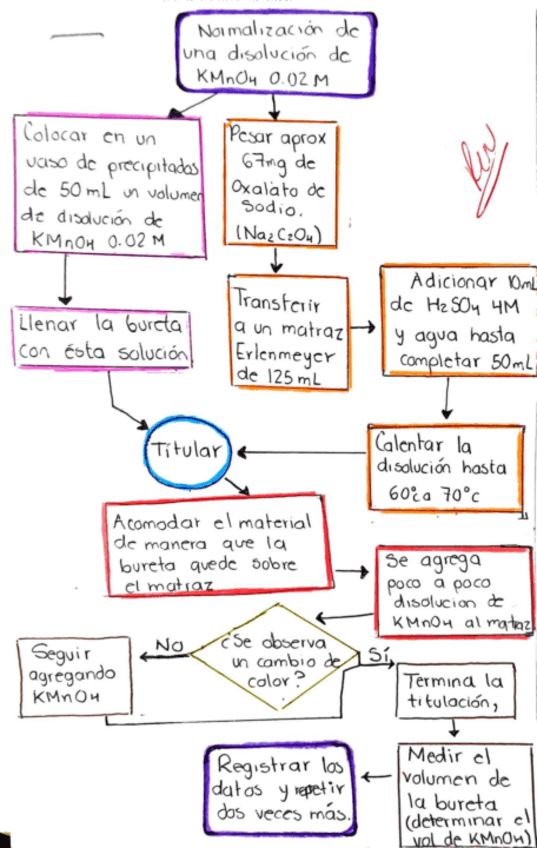 Normalización de
una disolución de
KMnO4 0.02 M
Colocar en un
vaso de precipitados
de 50 mL un volumen
de disolución de
KMnO4 0.02 M
Pesar aprox
67mg de
Oxalato de
Sodio.
(Na2C2O4)
Llenar la bureta
con ésta solución
Transferir
a un matraz
Erlenmeyer
de 125 mL
Adicionar 10mL
de H2SO4 4M
y agua hasta
completar 50mL
Titular
Calentar la
disolución hasta
60° a 70°c
Acomodar el material
de manera que la
bureta quede sobre
el matraz
Se agrega
poco a poco
disolucion de
KMnO4 al matraz
¿Se observa
un cambio de
color?
No
Sí
Seguir
agregando
KMnO4
Termina la
titulación,
Medir el
volumen de
la bureta
(determinar el
vol de KMnO4)
Registrar los
datos y repetir
dos veces más.